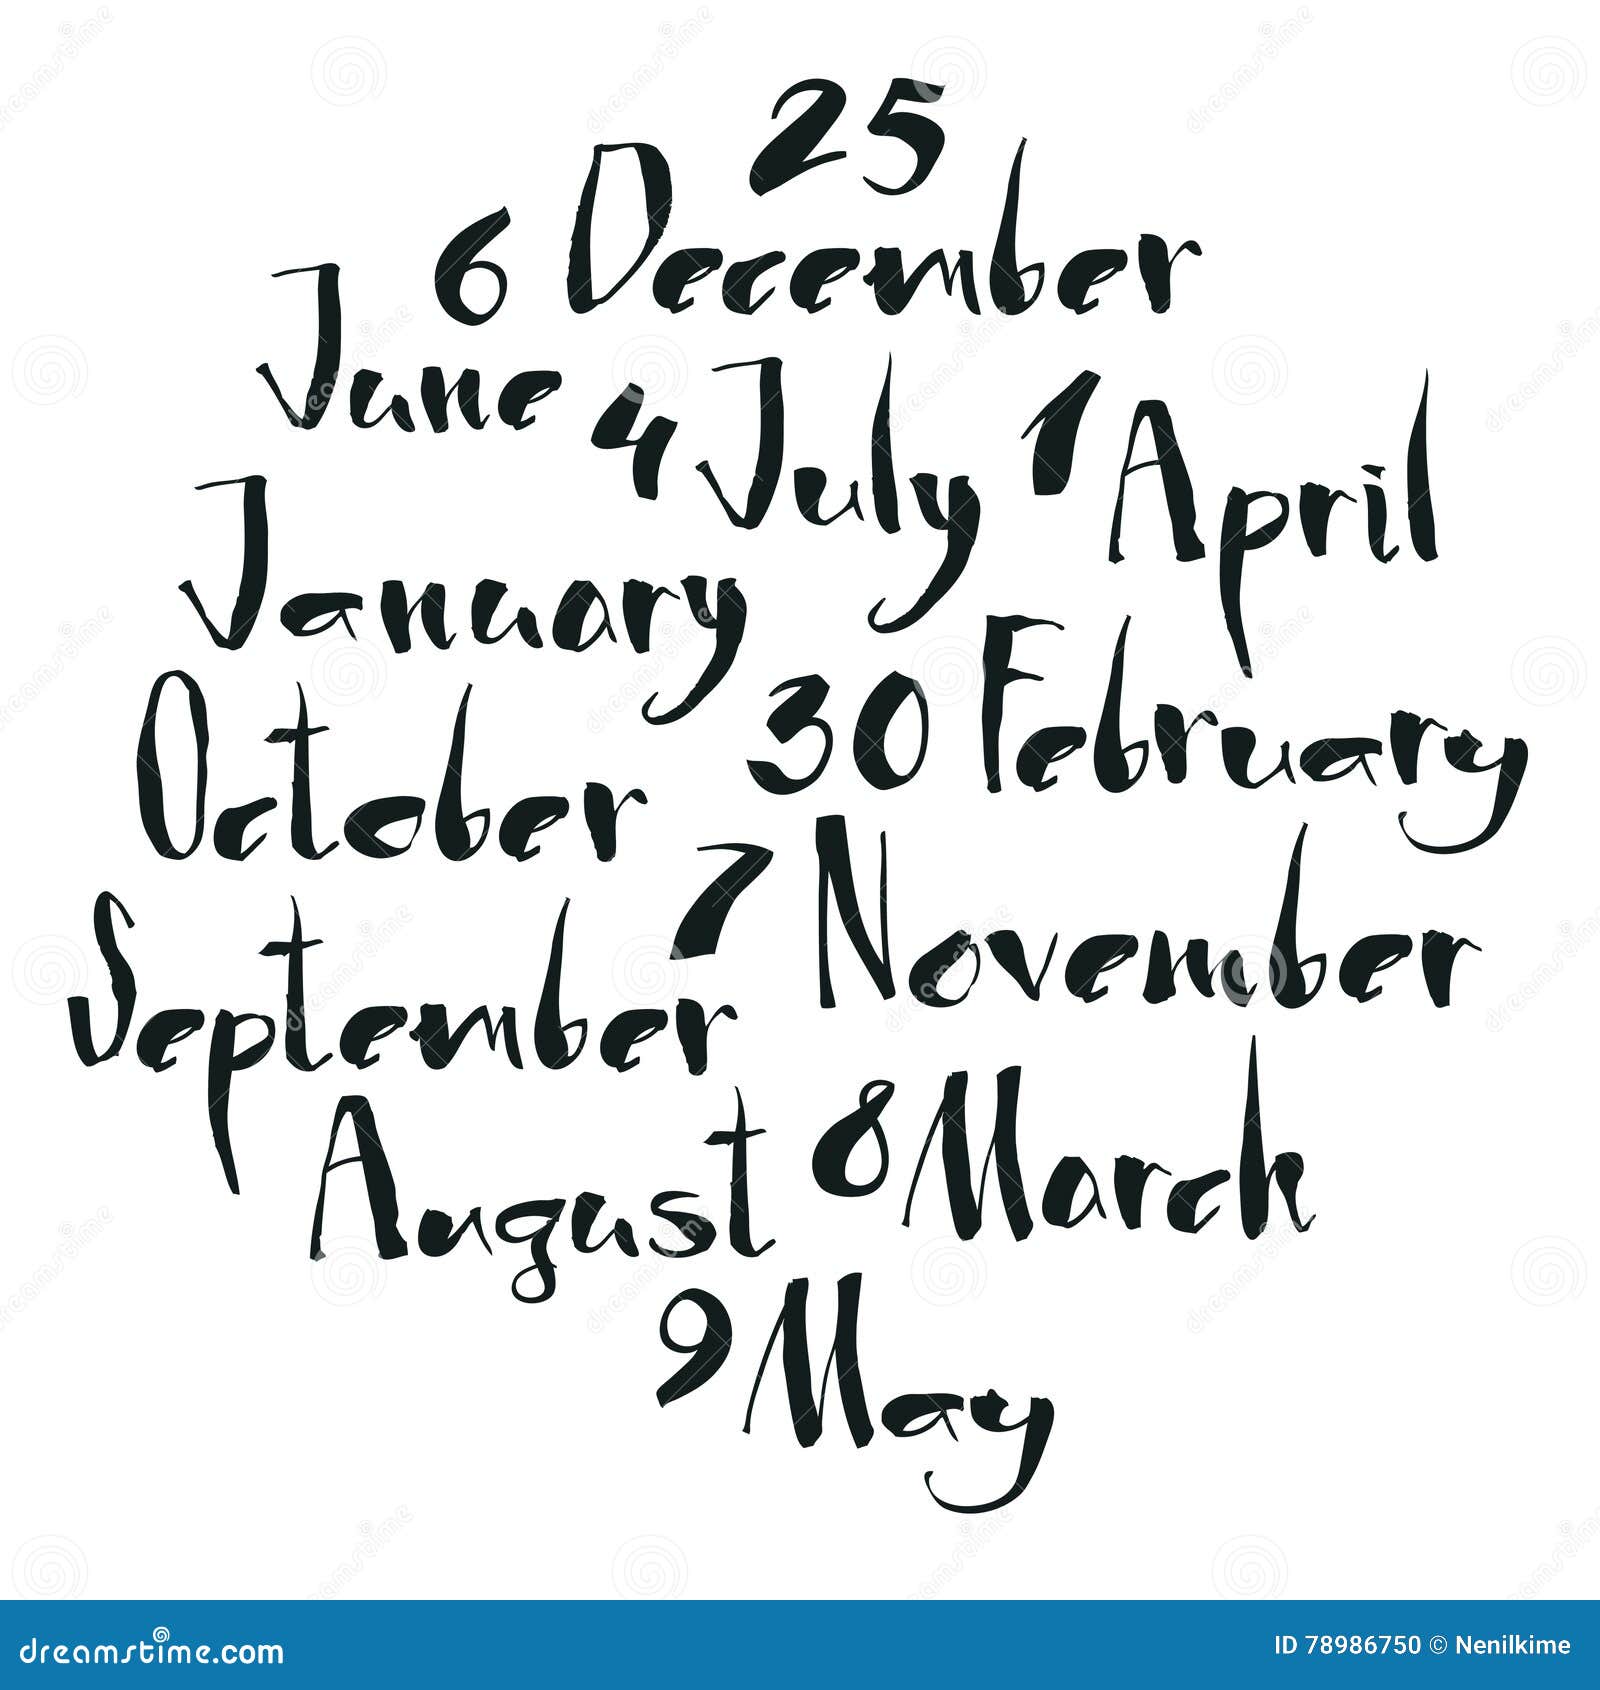 25
6 December
June 4 July 1 April
January
October 30 February
September 7 November
August 8 March
9 May
dreamstime.com
ID 78986750 © Nenilkime